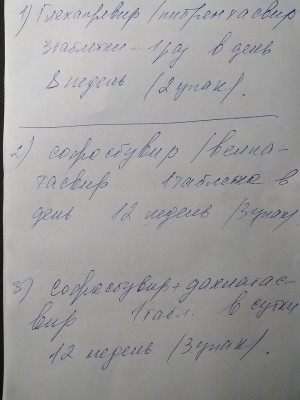 1) Глекапревир / пибрентасвир
3 таблетки - 1 раз в день
8 недель (2 упак).
2) софосбувир / велпа-
тасвир 1 таблетка в
день 12 недель (3 упак)
3) софосбувир + даклатас-
вир 1 табл. в сутки
12 недель (3 упак).